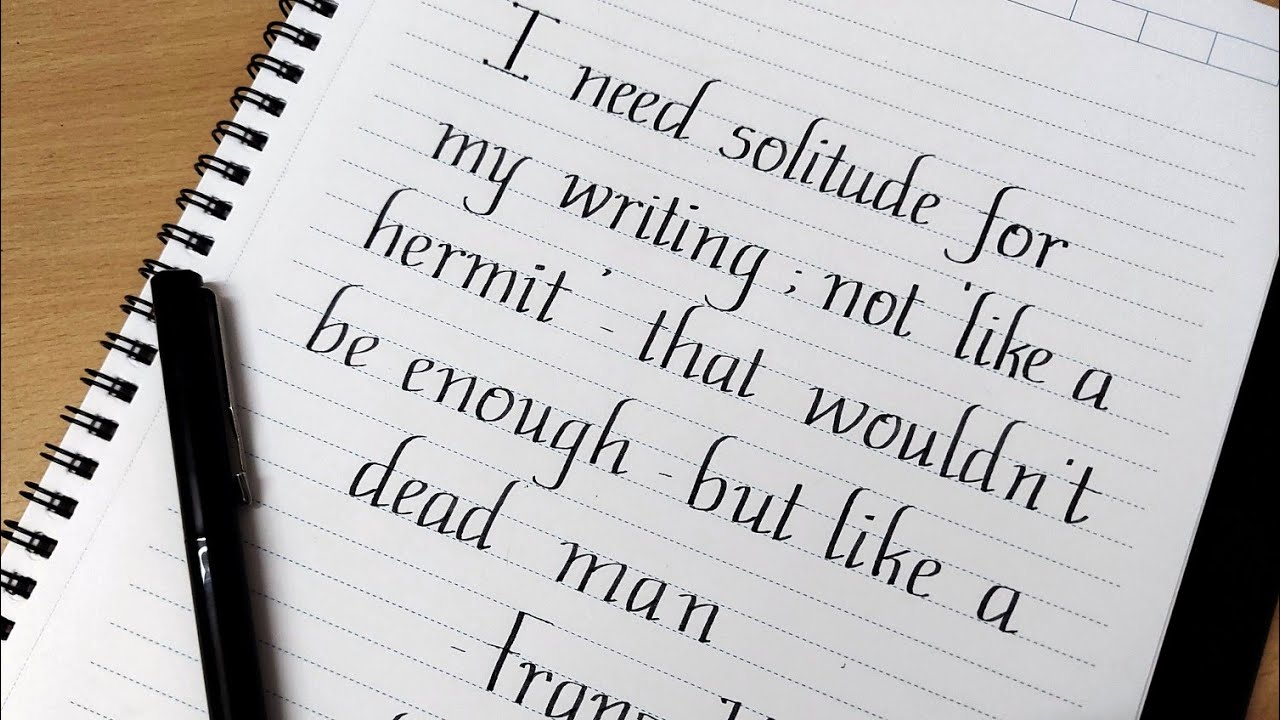 I need solitude for
my writing; not 'like a
hermit' - that wouldn't
be enough - but like a
dead man